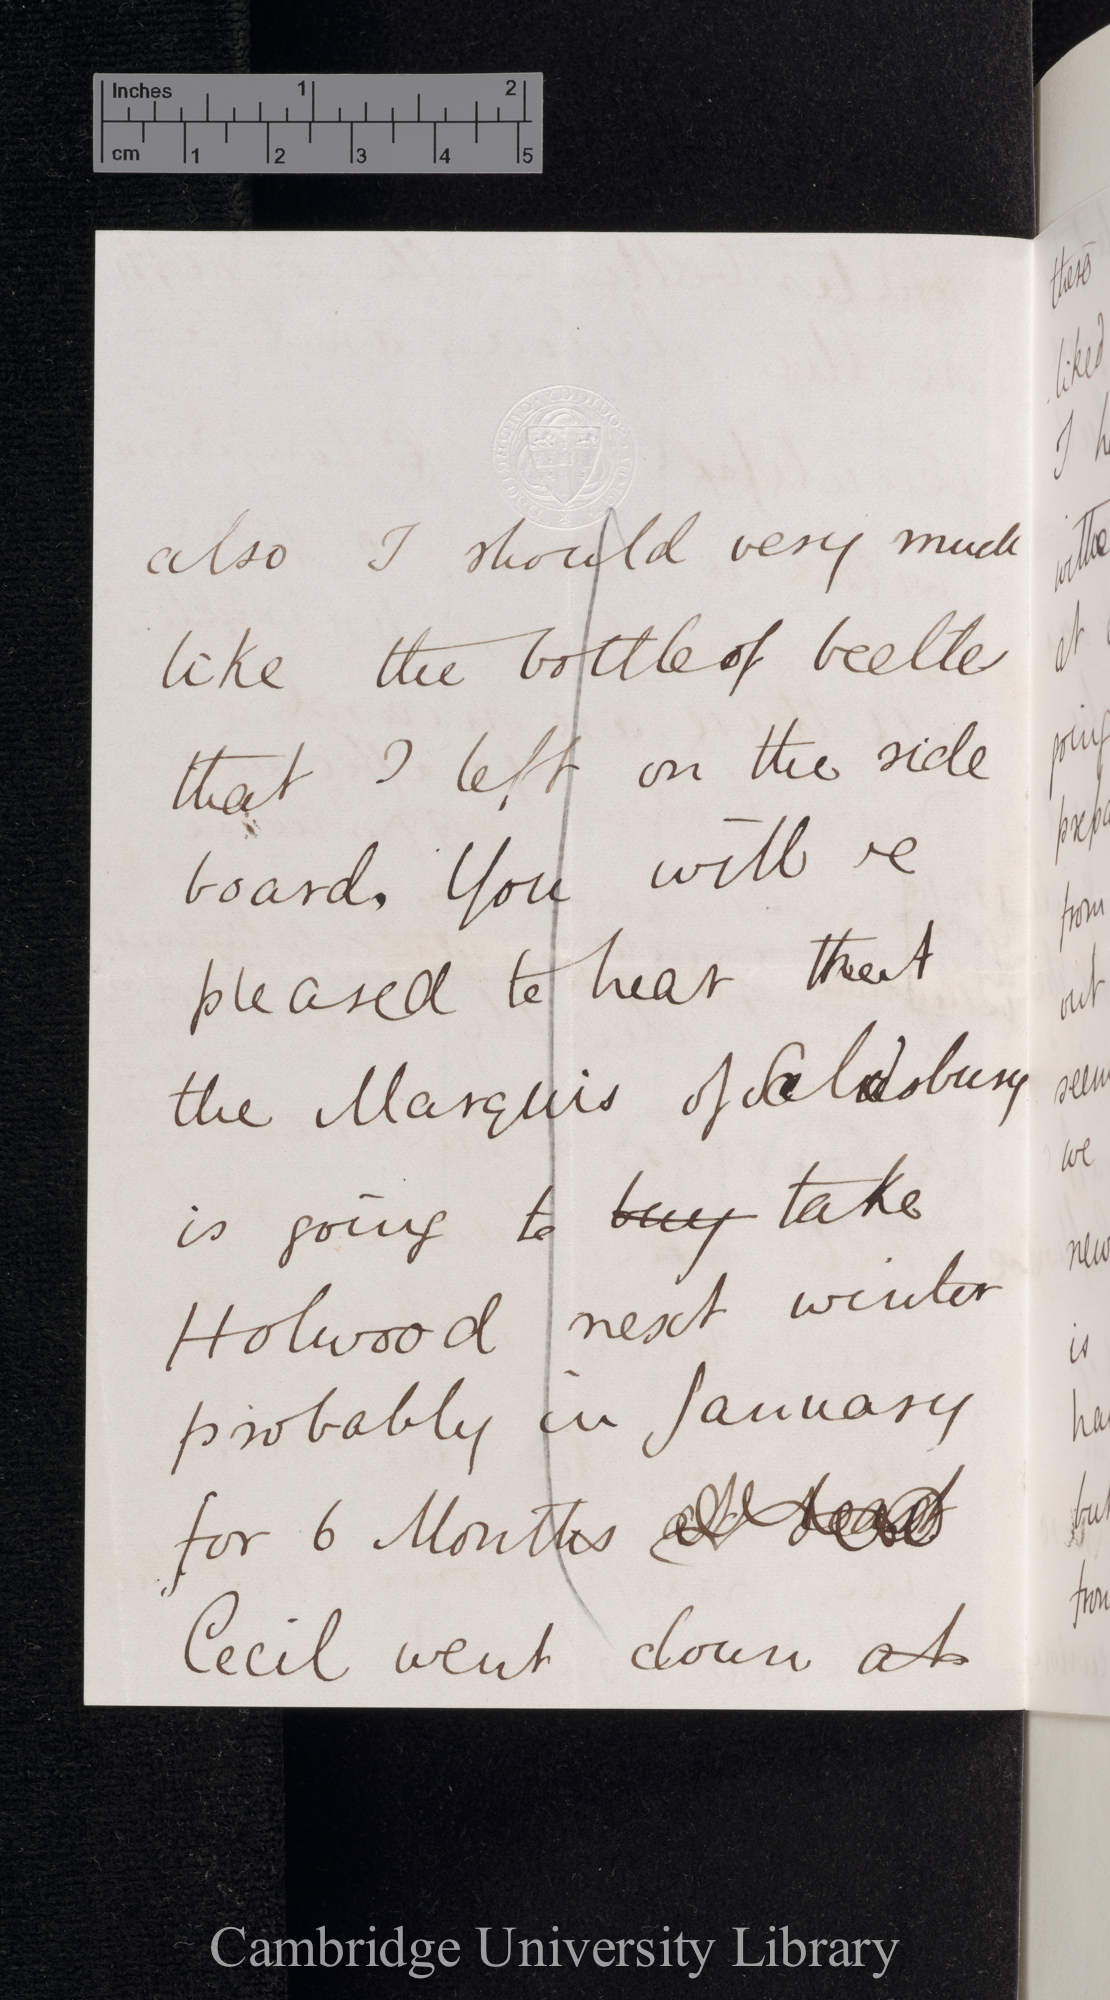 Inches 1 2
cm 1 2 3 4 5
also I should very much
like the bottle of beetles
that I left on the side
board. You will be
pleased to hear that
the Marquis of Salisbury
is going to buy take
Holwood next winter
probably in January
for 6 Months
Cecil went down at
these
liked
I
at
going
from
out
seem
we
new
is
but
from
Cambridge University Library